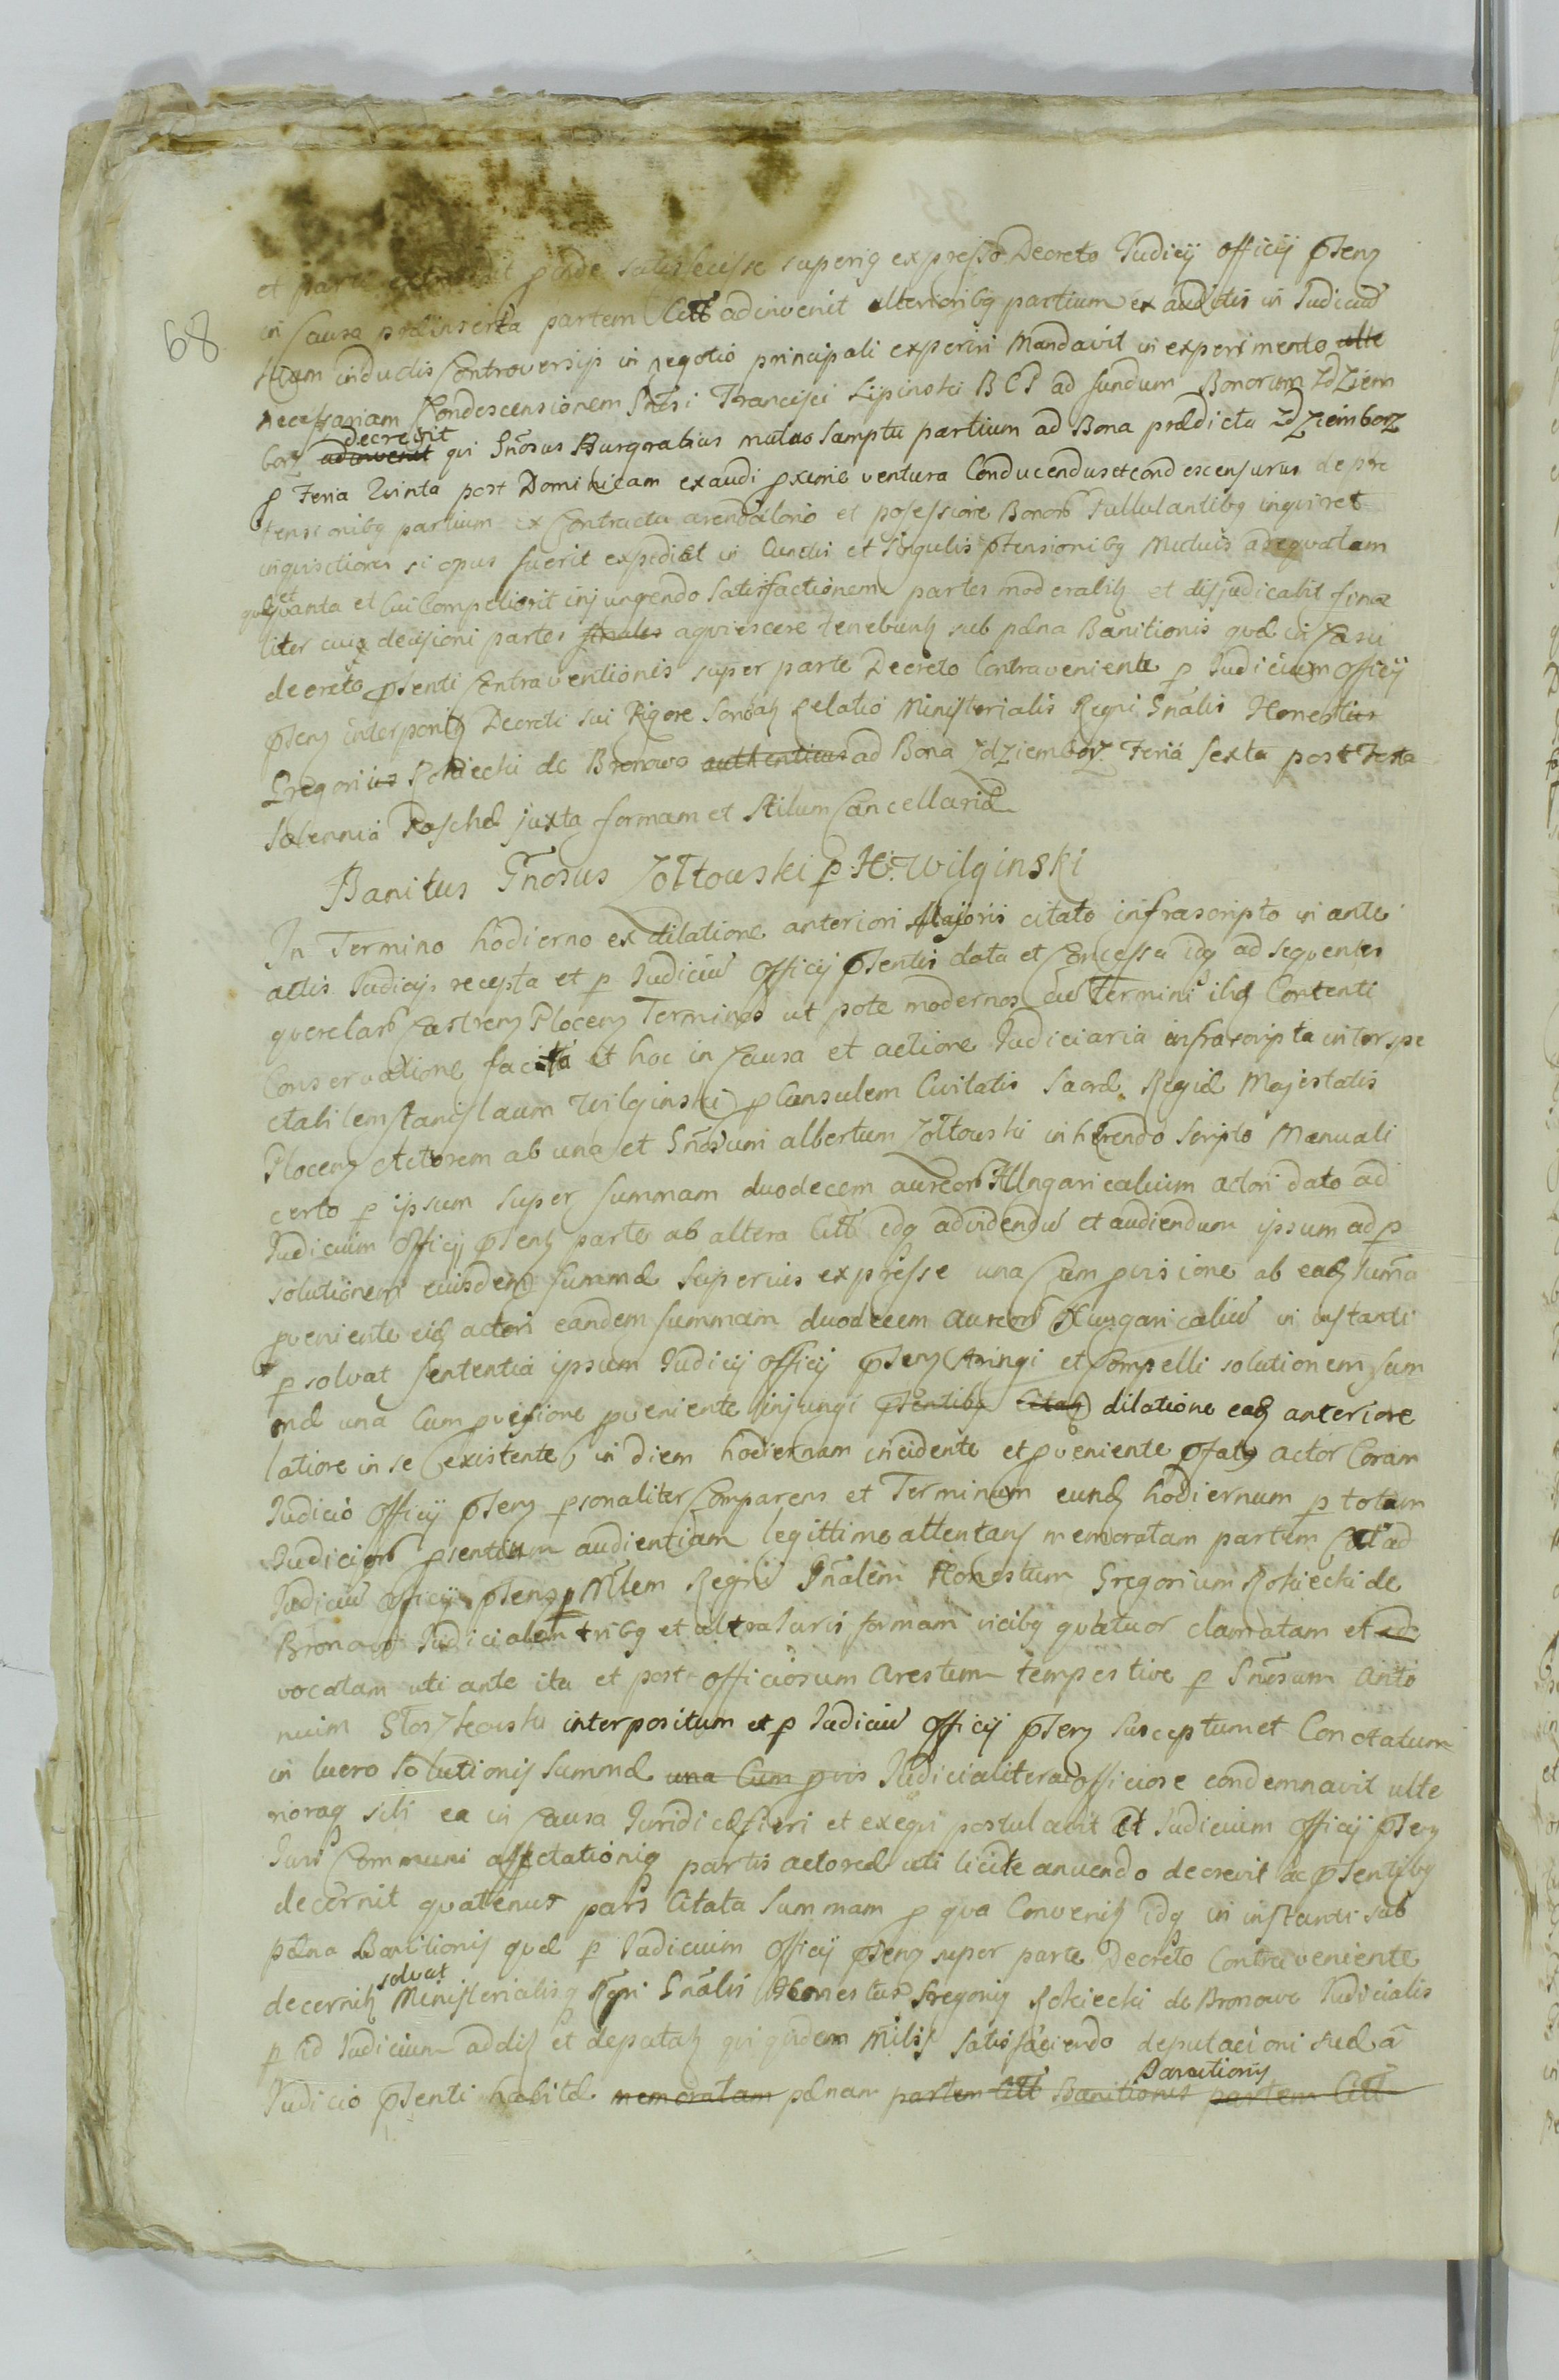 68
et parti satisfecisse superiq expresso Decreto Judicij officij pnteny
in Causa prdinserta partem Citt adinvenit ulterioribq partium ex auditis in Judiciu
inductis Controversijs in negotio principali experiri Mandavit in experimento ulte
necessariam Condescensionem Gnosi Francisci Lipinski BCP ad fundum Bonorum Zdziem
decrevit
borz adinvenit qui Gnosus Burgrabius mutuo Samptu partium ad Bona prdicta Zdziemborz
p Feria Quinta post Dominicam exaudi pxime ventura Conducendus et condescensurus de pre
tensionibq partium ex Contractu arendatorio et posessione Bonor Pullulantibq inquiret
inquisitiones si opus fuerit expediet in Cunctis et singulis ptensionibq Mutuis adequatam
et
quanta et Cui Competierit injungendo Satisfactionem partes moderabit et disjudicabit fina
liter cuiq decisioni partes finales aquiescere tenebunt sub pdna Banitionis qud in Casu
decreto psenti Contraventionis super parte Decreto Contraveniente p Judicium Officij
pteny interponit Decreti sui Rigore Relatio Ministerialis Regni Gnalis Honestus
Gregorius Rokiecki de Bronowo authenticus ad Bona Zdziemborz Feria Sexta post Festa
Solennia Paschd juxta formam et Stilum Cancellarid
Banitus Gnosus Zołtowski p H: Wilginski
In Termino hodierno ex dilatione anteriori Majoris citato infrascripto in ante
actis Judicijs recepta et p Judiciu Officij psentis data et Concessa idq ad sequentes
querelar Castreny Ploceny Terminos ut pote modernos cu Termini ihd Contenti
Conservatione facta et hoc in Causa et actione Judiciaria infrascripta inter spe
ctabilem Stanislaum Wilginski pConsulem Civitatis Sacrd Regid Majestatis
Ploceny Actorem ab una et Gnosum albertum Zołtowski inhdrendo Scripto Manuali
certo p ipsum super summam duodecem aureor Hungaricalium actori dato ad
Judicium Officij pteny parte ab altera Citt idq advidendu et audiendum ipsum ad p
solutionem eiusdem summd superius expresse una Cum pvisione ab eadq suma
pveniente eiq actori eandem summam duodecem Aureor Hungaricaliu in instanti
p solvat sententia ipsum Judicij Officij pteny Astringi et Compelli solutionem sum
md una Cum pvisione pveniente injungi psentibq Citatq dilatione eadq anteriore
latiore in se existente in diem hodiernam incidente et pveniente pfatq actor Coram
Judicio Officij pteny psonaliter Comparens et Terminum eundq hodiernum p totam
Judicior psentium audientiam legittime attentans memoratam partem Citt ad
Judiciu Officij pteny p Mtlem Regni Gnalem Honestum Gregorium Rokiecki de
Bronowo Judicialem tribq et ultra Juris formam vicibq quatuor clamatam et ad
vocatam uti ante ita et post officiosum Arestum tempestive p Gnosum Anto
nium Stoszkowski interpositum et p Judiciu Officij pteny susceptum et Conotatum
in lucro solutionis Summd una Cum pvis Judicialiter ac officiose condemnavit ulte
rioraq sibi ea in Causa Juridice fieri et exequi postulavit Et Judicium Officij pteny
Juri Communi affectationiq partis actored uti licite anuendo decrevit ac psentibq
decernit quatenus pars Citata Summam p qua Convenit idq in instanti sub
pdna Banitionis qud p Judicium Officij pteny super parte Decreto Contraveniente
solvat
decernit Ministerialisq Regni Gnalis Honestus Gregoriq Rokiecki de Bronowo Judicialis
p id Judicium addit et deputatq qui quidem Milis satisfaciendo deputacioni sud a
Banitionis
Judicio psenti habitd memoratam pdnam partem Citt Banitionis partem Citt